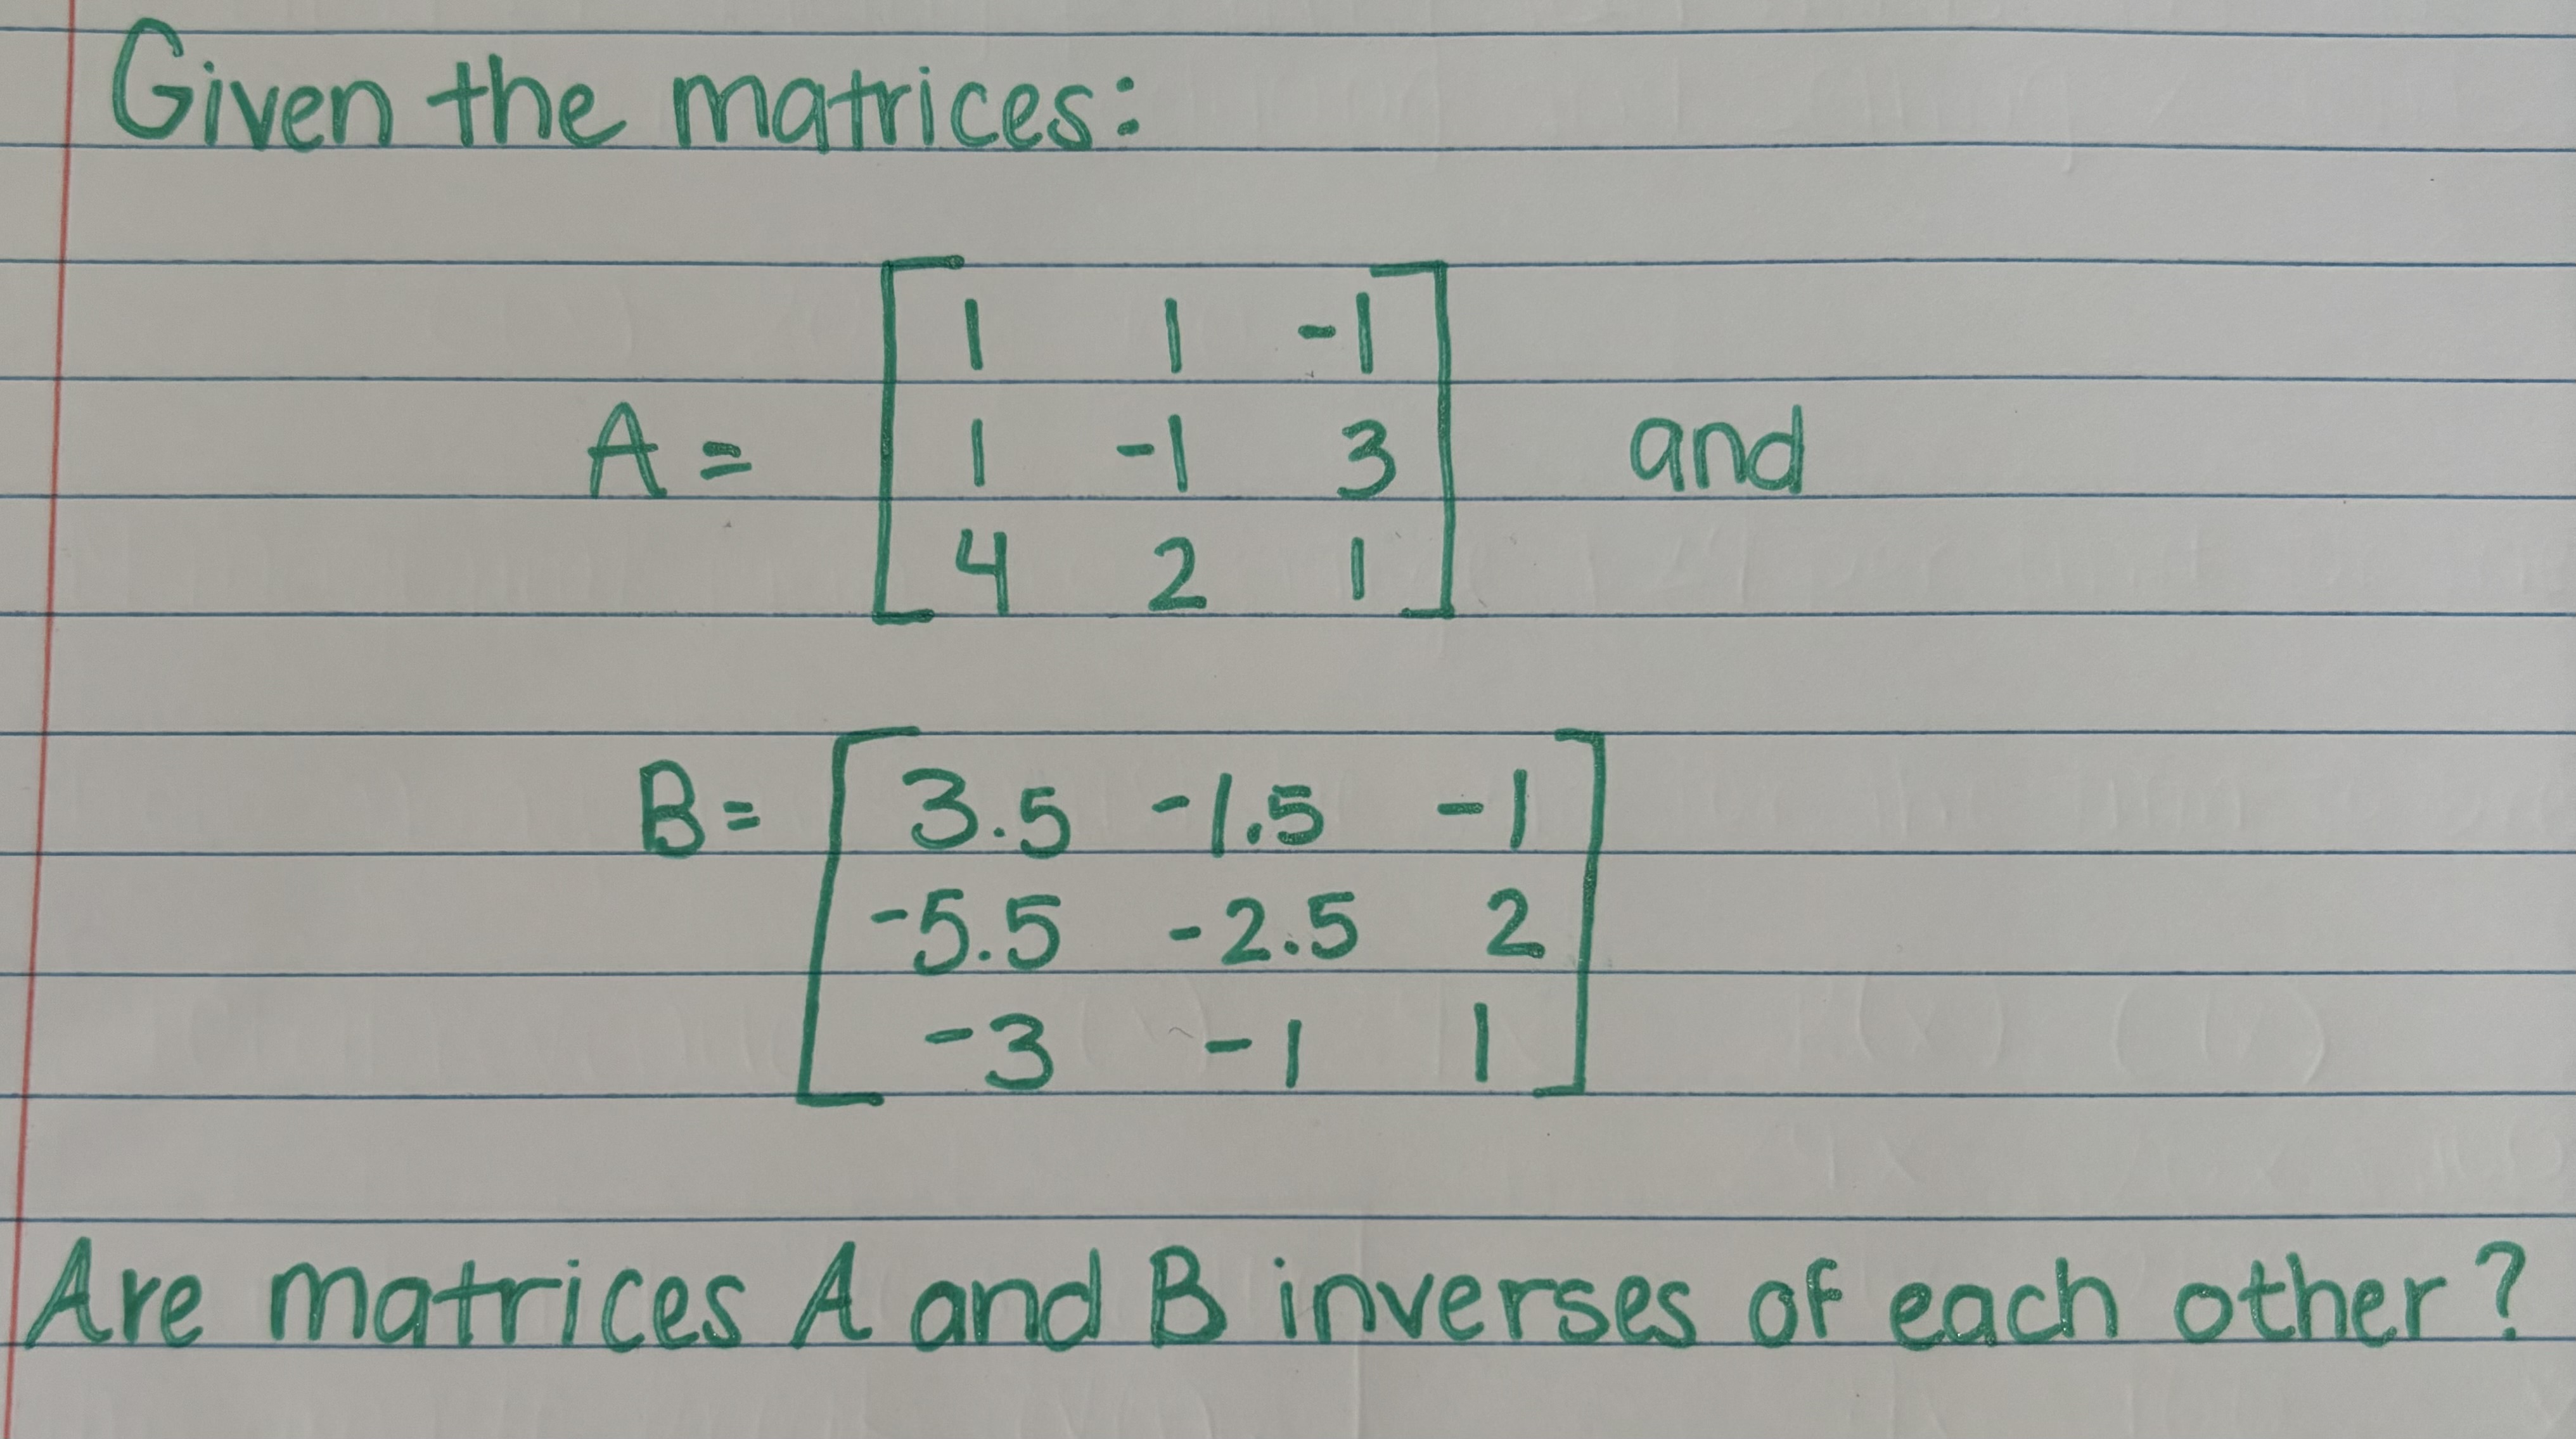 Given the matrices:
1 1 -1
A = 1 -1 3 and
4 2 1
B = 3.5 -1.5 -1
-5.5 -2.5 2
-3 -1 1
Are matrices A and B inverses of each other?